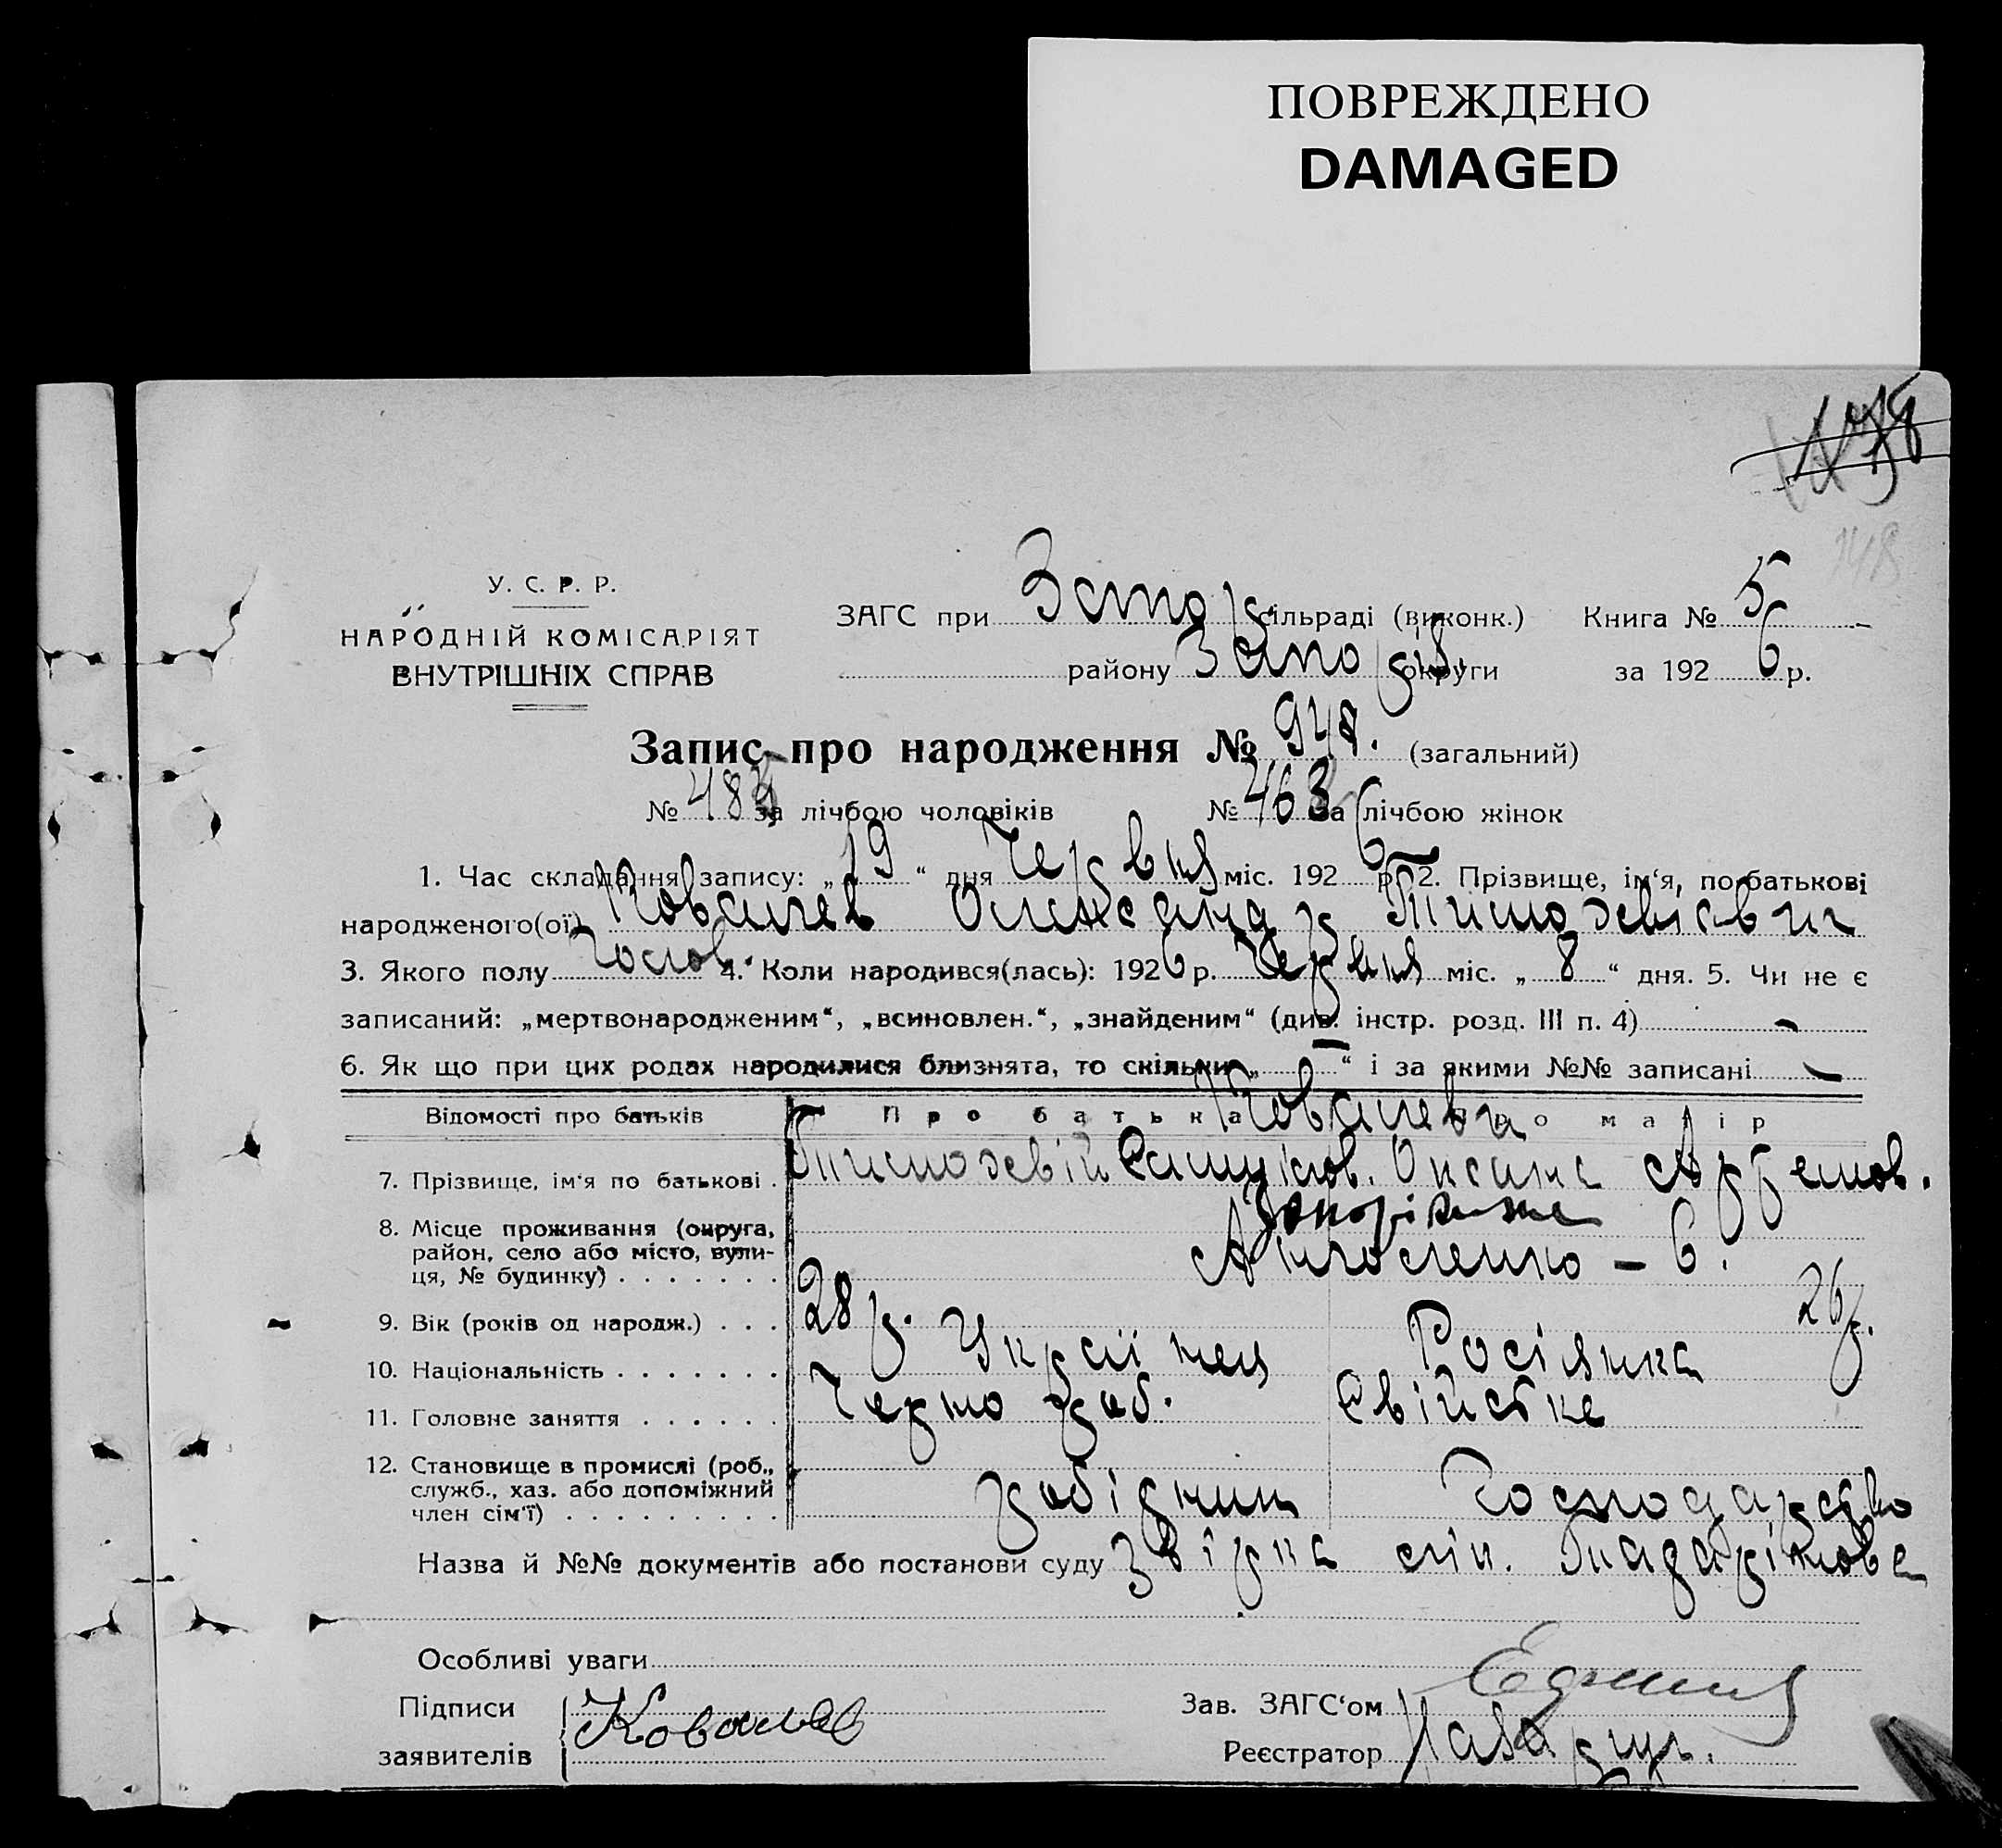 ПОВРЕЖДЕНО
DAMAGED
148
У. С. Р. Р.
НАРОДНІЙ КОМІСАРІЯТ
ВНУТРІШНІХ СПРАВ
ЗАГС при Запор. сільраді (виконк.) Книга № 5
району Запоріз. округи за 1926 р.
Запис про народження № 948. (загальний)
№ 485 за лічбою чоловіків № 463 за лічбою жінок
1. Час складання запису: „19“ дня Червня міс. 1926 р. 2. Прізвище, ім‘я, по батькові
народженого(ої) Ковалев Олександр Тимофевіевич
3. Якого полу чолов. 4. Коли народився(лась): 1926 р. Червня міс. „8“ дня. 5. Чи не є
записаний: „мертвонародженим“, „всиновлен.“, „знайденим“ (див. інстр. розд. III п. 4) –
6. Як що при цих родах народилися близнята, то скільки „–“ і за якими №№ записані –
Відомості про батьків Про батька Про матір
Ковалеви
7. Прізвище, ім‘я по батькові . Тимофевій Оксана Артемов.
8. Місце проживання (округа, район, село або місто, вулиця, № будинку) . . . . . . . Запоріжжє
– 6.
9. Вік (років од народж.) . . . 28 р. 26 р.
10. Національність . . . . . . . Україінец Росіянка
11. Головне заняття . . . . . . Черно роб. Свійське
12. Становище в промислі (роб., служб., хаз. або допоміжний член сім‘ї) . . . . . . . . . робідник Господарство
Назва й №№ документів або постанови суду Звірка
Особливі уваги
Підписи заявителів Ковалев
Зав. ЗАГС‘ом
Реєстратор